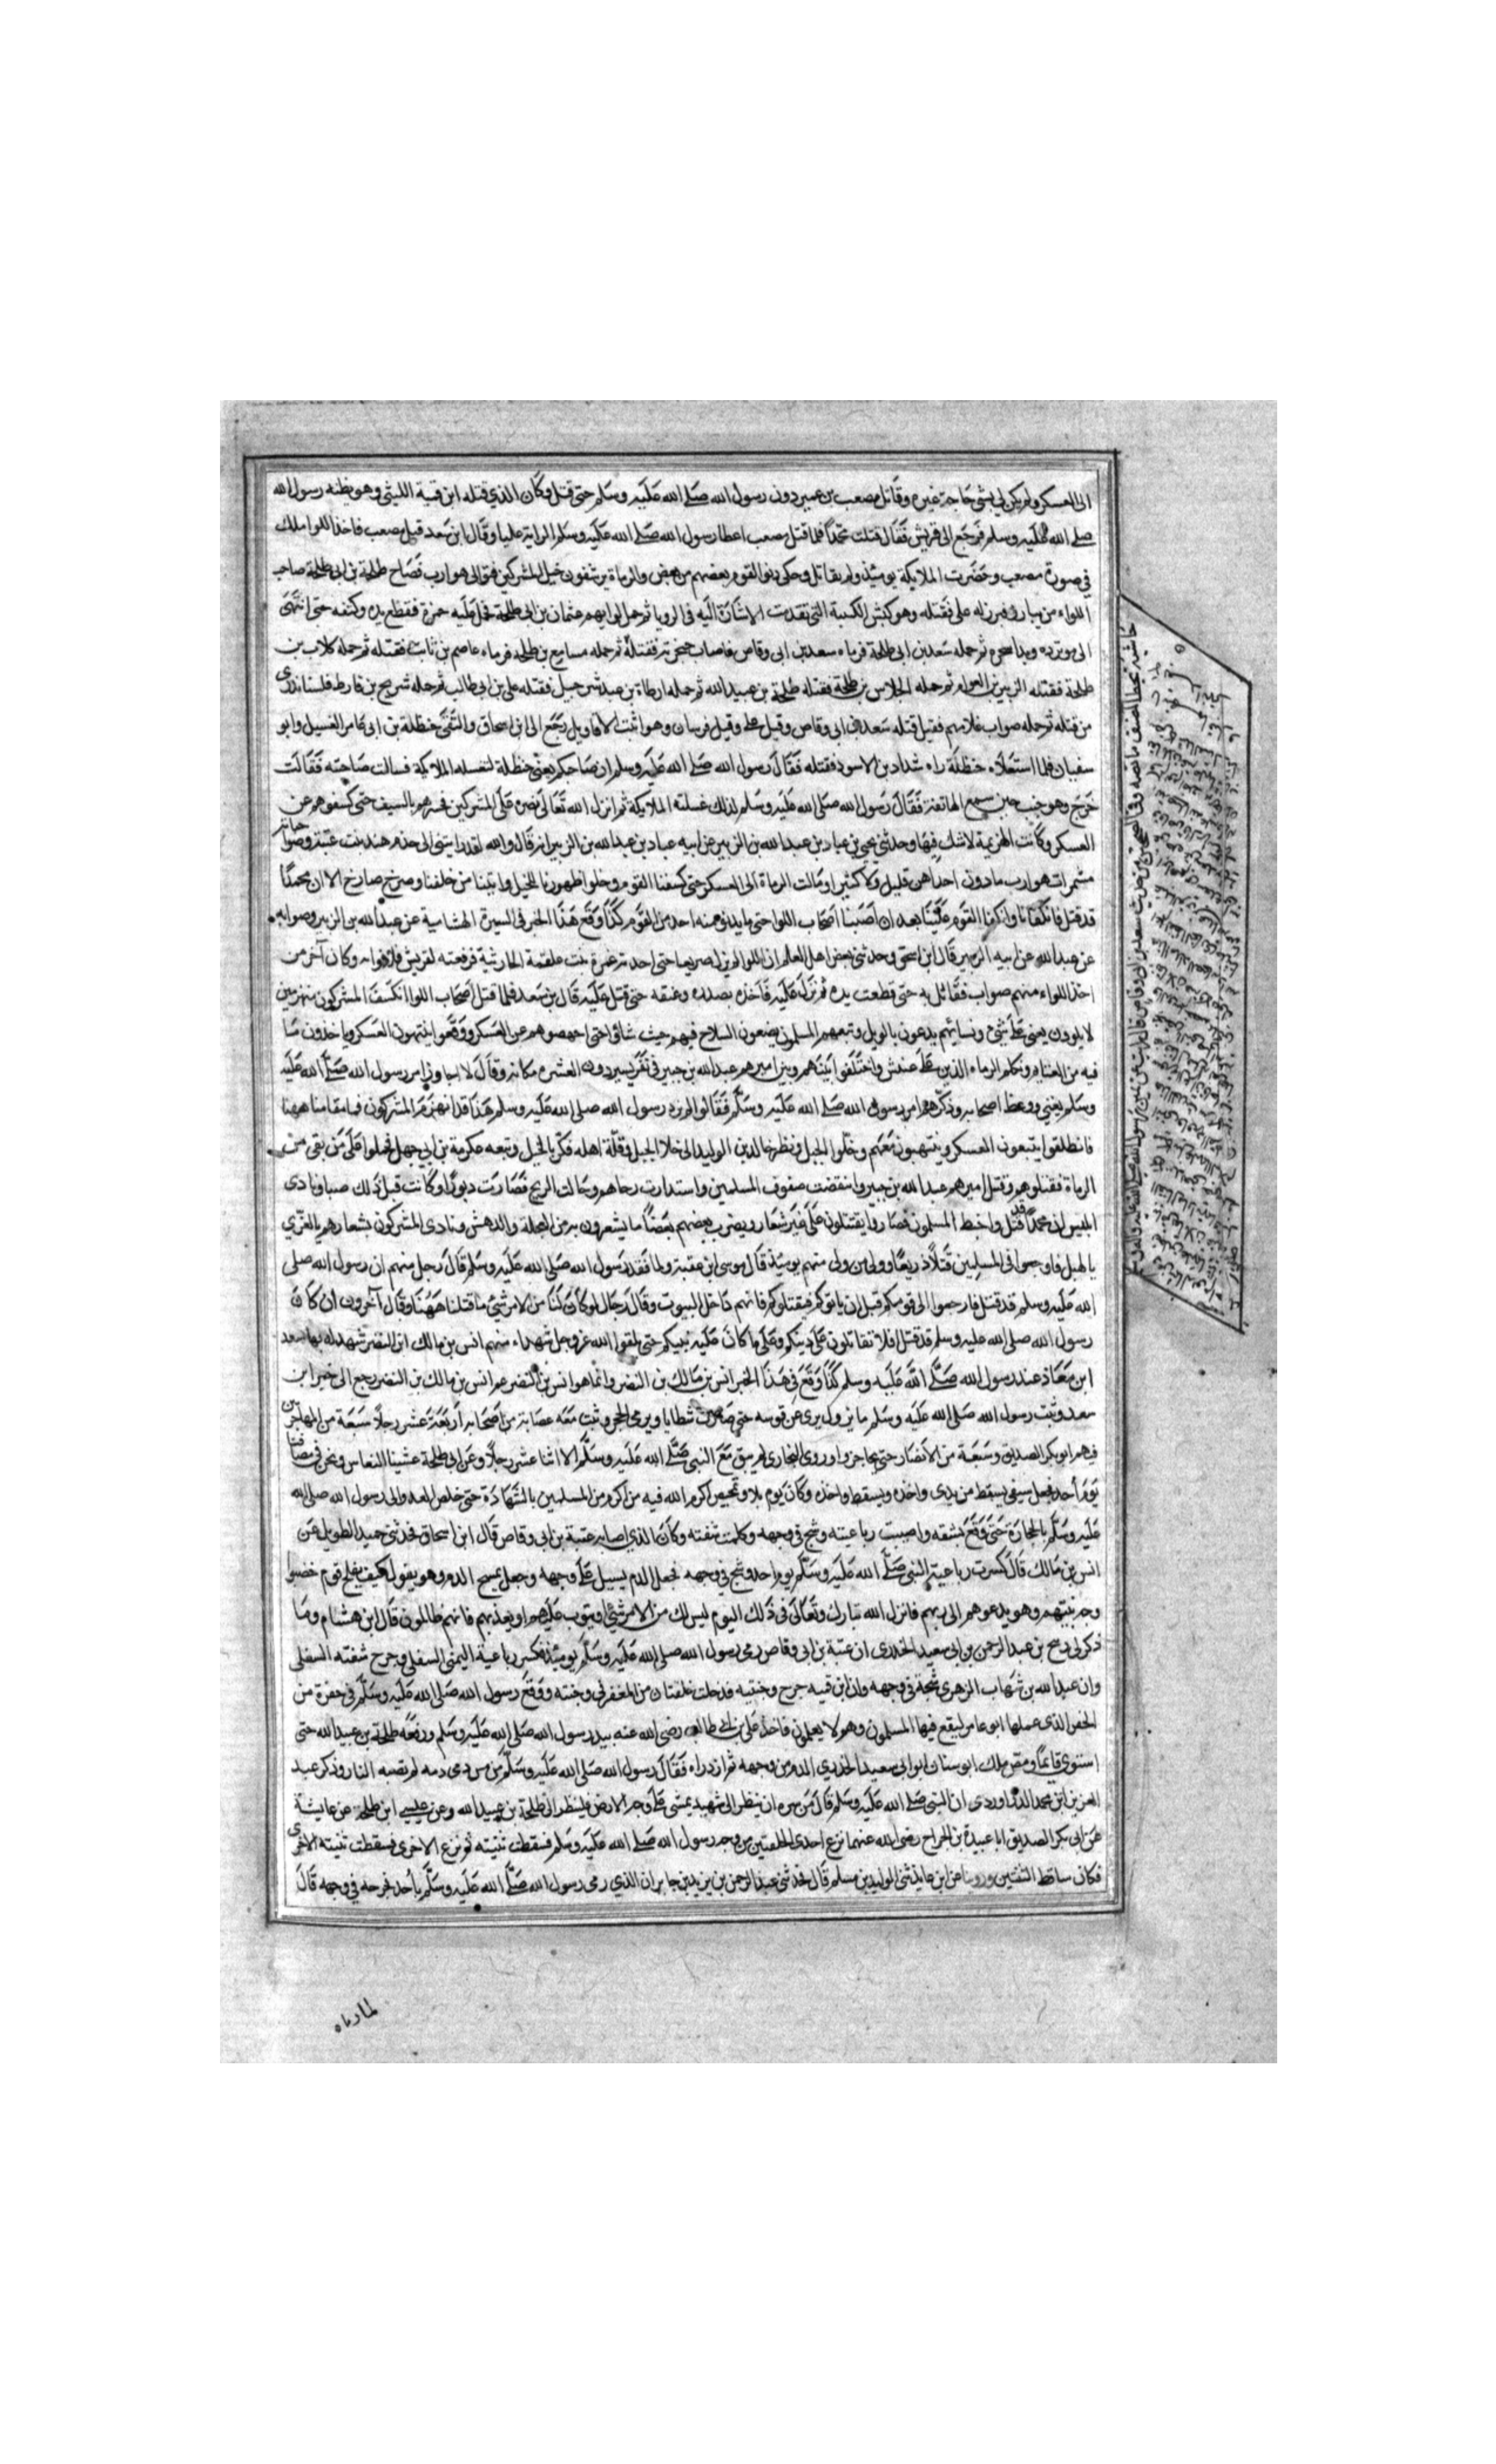 الى العسكر ولم يكن لي بشى حاجة غيره وقاتل مصعب بن عمير دون رسول الله صلى الله عليه وسلم حتى قتل وكان الذي قتله ابن قمية الليثي وهو يظنه رسول الله
صلى الله عليه وسلم فرجع الى قريش فقال قتلت محمدا فلما قتل مصعب اعطا رسول الله صلى الله عليه وسلم الراية عليا وقال ابن سعد قتل مصعب فاخذ اللوا ملك
في صورة مصعب وحضرت الملايكة يومئذ ولم يقاتل وحكى دنو القوم بعضهم من بعض والرماة يرشقون خيل المشركين فتولى هوارب فصاح طلحة بن ابى طلحة صاحب
اللواء من يبارز فبرز له على فقتله وهو كبش الكتيبة التى تقدمت الاشارة اليه في الرويا ثم حمل لوايهم عثمان بن ابى طلحة فحمل عليه حمزة فقطع يده وكتفه حتى انتهى
الى موتزره وبدا سحره ثم حمله سعد بن ابى طلحة فرماه سعد بن ابى وقاص فاصاب حنجرته فقتله ثم حمله مسافع بن طلحه فرماه عاصم بن ثابت فقتله ثم حمله كلاب بن
طلحة فقتله الزبير بن العوام ثم حمله الجلاس بن طلحة فقتله طلحة بن عبيد الله ثم حمله ارطاة بن عبد شرحبيل فقتله على بن ابى طالب ثم حمله شريح بن قارط فلسنا ندرى
من قتله ثم حمله صواب غلامهم فقيل قتله سعد بن ابى وقاص وقيل على وقيل قزمان وهو اثبت الاقاويل رجع الى ابن اسحاق والتقى حنظلة بن ابى عامر الغسيل وابو
سفيان فلما استعلاه حنظلة راه شداد بن الاسود فقتله فقال رسول الله صلى الله عليه وسلم ان صاحبكم يعنى حنظلة لتغسله الملايكة فسالت صاحبته فقالت
خرج وهو جنب حين سمع الهاتفة فقال رسول الله صلى الله عليه وسلم لذلك غسلته الملايكة ثم انزل الله تعالى نصره على المشركين فحسوهم بالسيف حتى كشفوهم عن
العسكر وكانت الهزيمة لا شك فيها وحدثنى يحيى بن عباد بن عبد الله بن الزبير عن ابيه عباد بن عبد الله بن الزبير انه قال والله لقد رايتنى الى خدم هند بنت عتبة وصواحباتها
مشمرات هوارب ما دون احداهن قليل ولا كثير او مالت الرماة الى العسكر حتى كشفنا القوم وخلوا ظهورنا للخيل واتينا من خلفنا وصرخ صارخ الا ان محمدا
قد قتل فانكفانا وانكفا القوم علينا بعد ان اصبنا اصحاب اللوا حتى ما يدنو منه احد من القوم كذا وقع هذا الخبر في السيرة الهشامية عن عبد الله بن الزبير وصوابه
عن عبد الله عن ابيه الزبير قال ابن اسحق وحدثنى بعض اهل العلم ان اللوا لم يزل صريعا حتى اخذته عمرة بنت علقمة الحارثية فرفعته لقريش فلاذوا به وكان آخر من
اخذ اللواء منهم صواب فقاتل به حتى قطعت يده ثم نزل عليه فاخذه بصدره وعنقه حتى قتل عليه قال بن سعد فلما قتل اصحاب اللوا انكشف المشركون منهزمين
لا يلوون يعنى على شئ ونسائهم يدعون بالويل وتبعهم المسلمون يضعون السلاح فيهم حيث شاؤا حتى اجهضوهم عن العسكر ووقعوا ينتهبون العسكر وياخذون ما
فيه من الغنايم وتكلم الرماه الذين على عينين واختلفوا بينهم وثبت اميرهم عبد الله بن جبير في نفر يسير دون العشره مكانه وقال لا اجاوز امر رسول الله صلى الله عليه
وسلم يعني ووعظ اصحابه وذكرهم امر رسول الله صلى الله عليه وسلم فقالوا لم يرد رسول الله صلى الله عليه وسلم هذا قد انهزم المشركون فما مقامنا ههنا
فانطلقوا يتبعون العسكر وينتهبون معهم وخلوا الجبل ونظر خالد بن الوليد الى خلا الجبل وقلة اهله فكر بالخيل وتبعه عكرمة بن ابى جهل فحملوا على من بقى من
الرماة فقتلوهم وقتل اميرهم عبد الله بن جبير وانتقضت صفوف المسلمين واستدارت رحاهم وحالت الريح فصارت دبورا وكانت قبل ذلك صبا ونادى
ابليس ان محمدا قد قتل واختلط المسلمون فصاروا يقتتلون على غير شعار ويضرب بعضهم بعضا ما يشعرون به من العجلة والدهش ونادى المشركون بشعارهم يا للعزى
يا لهبل فاوجعوا في المسلمين قتلا ذريعا وولى من ولى منهم يومئذ قال موسى ابن عقبة ولما فقد رسول الله صلى الله عليه وسلم قال رجل منهم ان رسول الله صلى
الله عليه وسلم قد قتل فارجعوا الى قومكم قبل ان ياتوكم فيقتلوكم فانهم داخل البيوت وقال رجال لو كان لنا من الامر شئ ما قتلنا ههنا وقال آخرون ان كان
رسول الله صلى الله عليه وسلم قد قتل افلا تقاتلون على دينكم وعلى ما كان عليه نبيكم حتى تلقوا الله عز وجل شهداء منهم انس بن مالك ابن النضر شهد له بها سعد
ابن معاذ عند رسول الله صلى الله عليه وسلم كذا وقع في هذا الخبر انس بن مالك بن النضر وانما هو انس بن النضر عم انس بن مالك بن النضر رجع الى خبر ابن
سعد وثبت رسول الله صلى الله عليه وسلم ما يزول يرمى عن قوسه حتى صارت شظايا ويرمى بالحجر وثبت معه عصابة من اصحابه اربعة عشر رجلا سبعة من المهاجرين
فيهم ابو بكر الصديق وسبعة من الانصار حتى تحاجزوا وروى البخارى لم يبق مع النبى صلى الله عليه وسلم الا اثنا عشر رجلا وعن ابى طلحة غشينا النعاس ونحن في مصافنا
يوم أحد فجعل سيفى يسقط من يدى واخذه ويسقط واخذه وكان يوم بلا وتمحيص اكرم الله فيه من اكرم من المسلمين بالشهادة حتى خلص العدو الى رسول الله صلى الله
عليه وسلم بالحجارة حتى وقع بشقه واصيبت رباعيته وشج في وجهه وكلمت شفته وكان الذي اصابه عتبة بن ابى وقاص قال ابن اسحاق فحدثنى حميد الطويل عن
انس بن مالك قال كسرت رباعية النبى صلى الله عليه وسلم يوم احد وشج في وجهه فجعل الدم يسيل على وجهه وجعل يمسح الدم وهو يقول كيف يفلح قوم خضبوا
وجه نبيهم وهو يدعوهم الى ربهم فانزل الله تبارك وتعالى في ذلك اليوم ليس لك من الامر شئ او يتوب عليهم او يعذبهم فانهم ظالمون قال ابن هشام وما
ذكر لى ربيح بن عبد الرحمن بن ابى سعيد الخدرى ان عتبة بن ابى وقاص رمى رسول الله صلى الله عليه وسلم يومئذ فكسر رباعية اليمنى السفلى وجرح شفته السفلى
وان عبد الله بن شهاب الزهرى شجه في وجهه وان ابن قميه جرح وجنتيه فدخلت حلقتان من المغفر في وجنته ووقع رسول الله صلى الله عليه وسلم في حفرة من
الحفر الذى عملها ابو عامر ليقع فيها المسلمون وهم لا يعلمون فاخذ على بن ابى طالب رضى الله عنه بيد رسول الله صلى الله عليه وسلم ورفعه طلحة بن عبيد الله حتى
استوى قائما ومص ملك ابو سنان ابو ابى سعيد الخدري الدم من وجهه ثم ازدراه فقال رسول الله صلى الله عليه وسلم من مس دمى دمه لم تصبه النار وذكر عبد
العزيز ابن محمد الدراوردى ان النبى صلى الله عليه وسلم قال من سره ان ينظر الى شهيد يمشى على وجه الارض فلينظر الى طلحة بن عبيد الله وعن عيسى ابن طلحة عن عايشة
عن ابى بكر الصديق ابا عبيدة بن الجراح رضى الله عنهما نزع احدى الحلقتين من وجه رسول الله صلى الله عليه وسلم فسقطت ثنيته ثم نزع الاخرى فسقطت ثنيته الاخرى
فكان ساقط الثنتين وروينا عن ابن عايذ ثنى الوليد بن مسلم قال فحدثنى عبد الرحمن بن يزيد بن جابر ان الذي رمى رسول الله صلى الله عليه وسلم بأحد فجرحه في وجهه قال
حاشية بخط المصنف ما نصه وفي الصحيح من حديث سعد بن ابى وقاص قال رايت عن يمين رسول الله صلى الله عليه وسلم